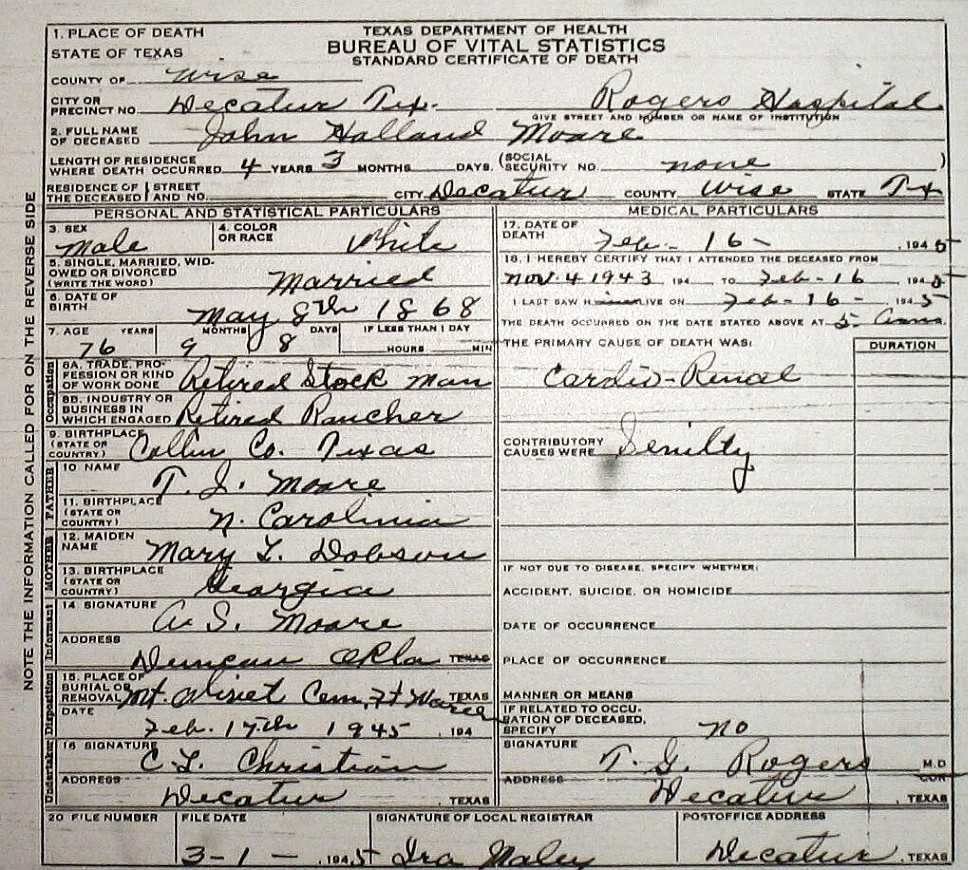 TEXAS DEPARTMENT OF HEALTH
BUREAU OF VITAL STATISTICS
STANDARD CERTIFICATE OF DEATH
1. PLACE OF DEATH
STATE OF TEXAS
COUNTY OF Wise
CITY OR PRECINCT NO. Decatur Tex. Rogers Hospital
GIVE STREET AND NUMBER OR NAME OF INSTITUTION
2. FULL NAME OF DECEASED John Holland Moore
LENGTH OF RESIDENCE WHERE DEATH OCCURRED 4 YEARS 3 MONTHS DAYS. (SOCIAL SECURITY NO. none )
RESIDENCE OF THE DECEASED STREET AND NO. CITY Decatur COUNTY Wise STATE Tx
PERSONAL AND STATISTICAL PARTICULARS
3. SEX Male 4. COLOR OR RACE White
5. SINGLE, MARRIED, WIDOWED OR DIVORCED (WRITE THE WORD) Married
6. DATE OF BIRTH May 8th 1868
7. AGE YEARS MONTHS DAYS IF LESS THAN 1 DAY
76 9 8 HOURS MIN
Occupation
8A. TRADE, PROFESSION OR KIND OF WORK DONE Retired Stock man
8B. INDUSTRY OR BUSINESS IN WHICH ENGAGED Retired Rancher
9. BIRTHPLACE (STATE OR COUNTRY) Collin Co. Texas
FATHER
10 NAME T. J. Moore
11. BIRTHPLACE (STATE OR COUNTRY) N. Carolinia
MOTHER
12. MAIDEN NAME Mary L. Dobson
13. BIRTHPLACE (STATE OR COUNTRY) Georgia
Informant
14. SIGNATURE A. S. Moore
ADDRESS Duncan Okla TEXAS
Disposition
15. PLACE OF BURIAL OR REMOVAL Mt. Olivet Cem, Ft Worth TEXAS
DATE Feb. 17th 1945 , 194
Undertaker
16 SIGNATURE C. L. Christian
ADDRESS Decatur , TEXAS
MEDICAL PARTICULARS
17. DATE OF DEATH Feb - 16 - , 1945
18. I HEREBY CERTIFY THAT I ATTENDED THE DECEASED FROM
Nov 4 1943 194 TO Feb - 16 , 1945
I LAST SAW H ALIVE ON Feb - 16 - , 1945
THE DEATH OCCURRED ON THE DATE STATED ABOVE AT 5 a.m.
THE PRIMARY CAUSE OF DEATH WAS: DURATION
Cardio-Renal
CONTRIBUTORY CAUSES WERE Senilty
IF NOT DUE TO DISEASE, SPECIFY WHETHER:
ACCIDENT, SUICIDE, OR HOMICIDE
DATE OF OCCURRENCE
PLACE OF OCCURRENCE
MANNER OR MEANS
IF RELATED TO OCCUPATION OF DECEASED, SPECIFY no
SIGNATURE T. G. Rogers M.D
ADDRESS Decatur , TEXAS
20 FILE NUMBER FILE DATE SIGNATURE OF LOCAL REGISTRAR POSTOFFICE ADDRESS
3-1- , 1945 Ira Maley Decatur , TEXAS
NOTE THE INFORMATION CALLED FOR ON THE REVERSE SIDE